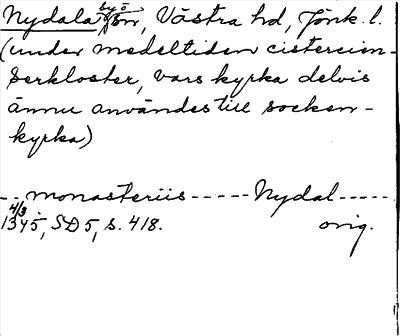 Nydala by o sn, Västra hd, Jönk. l.
(under medeltiden cistercien-
serkloster, vars kyrka delvis
ännu användes till socken-
kyrka)
-- monasteriis ----- Nydal -----
4/3
1345, SD 5, s. 418. orig.